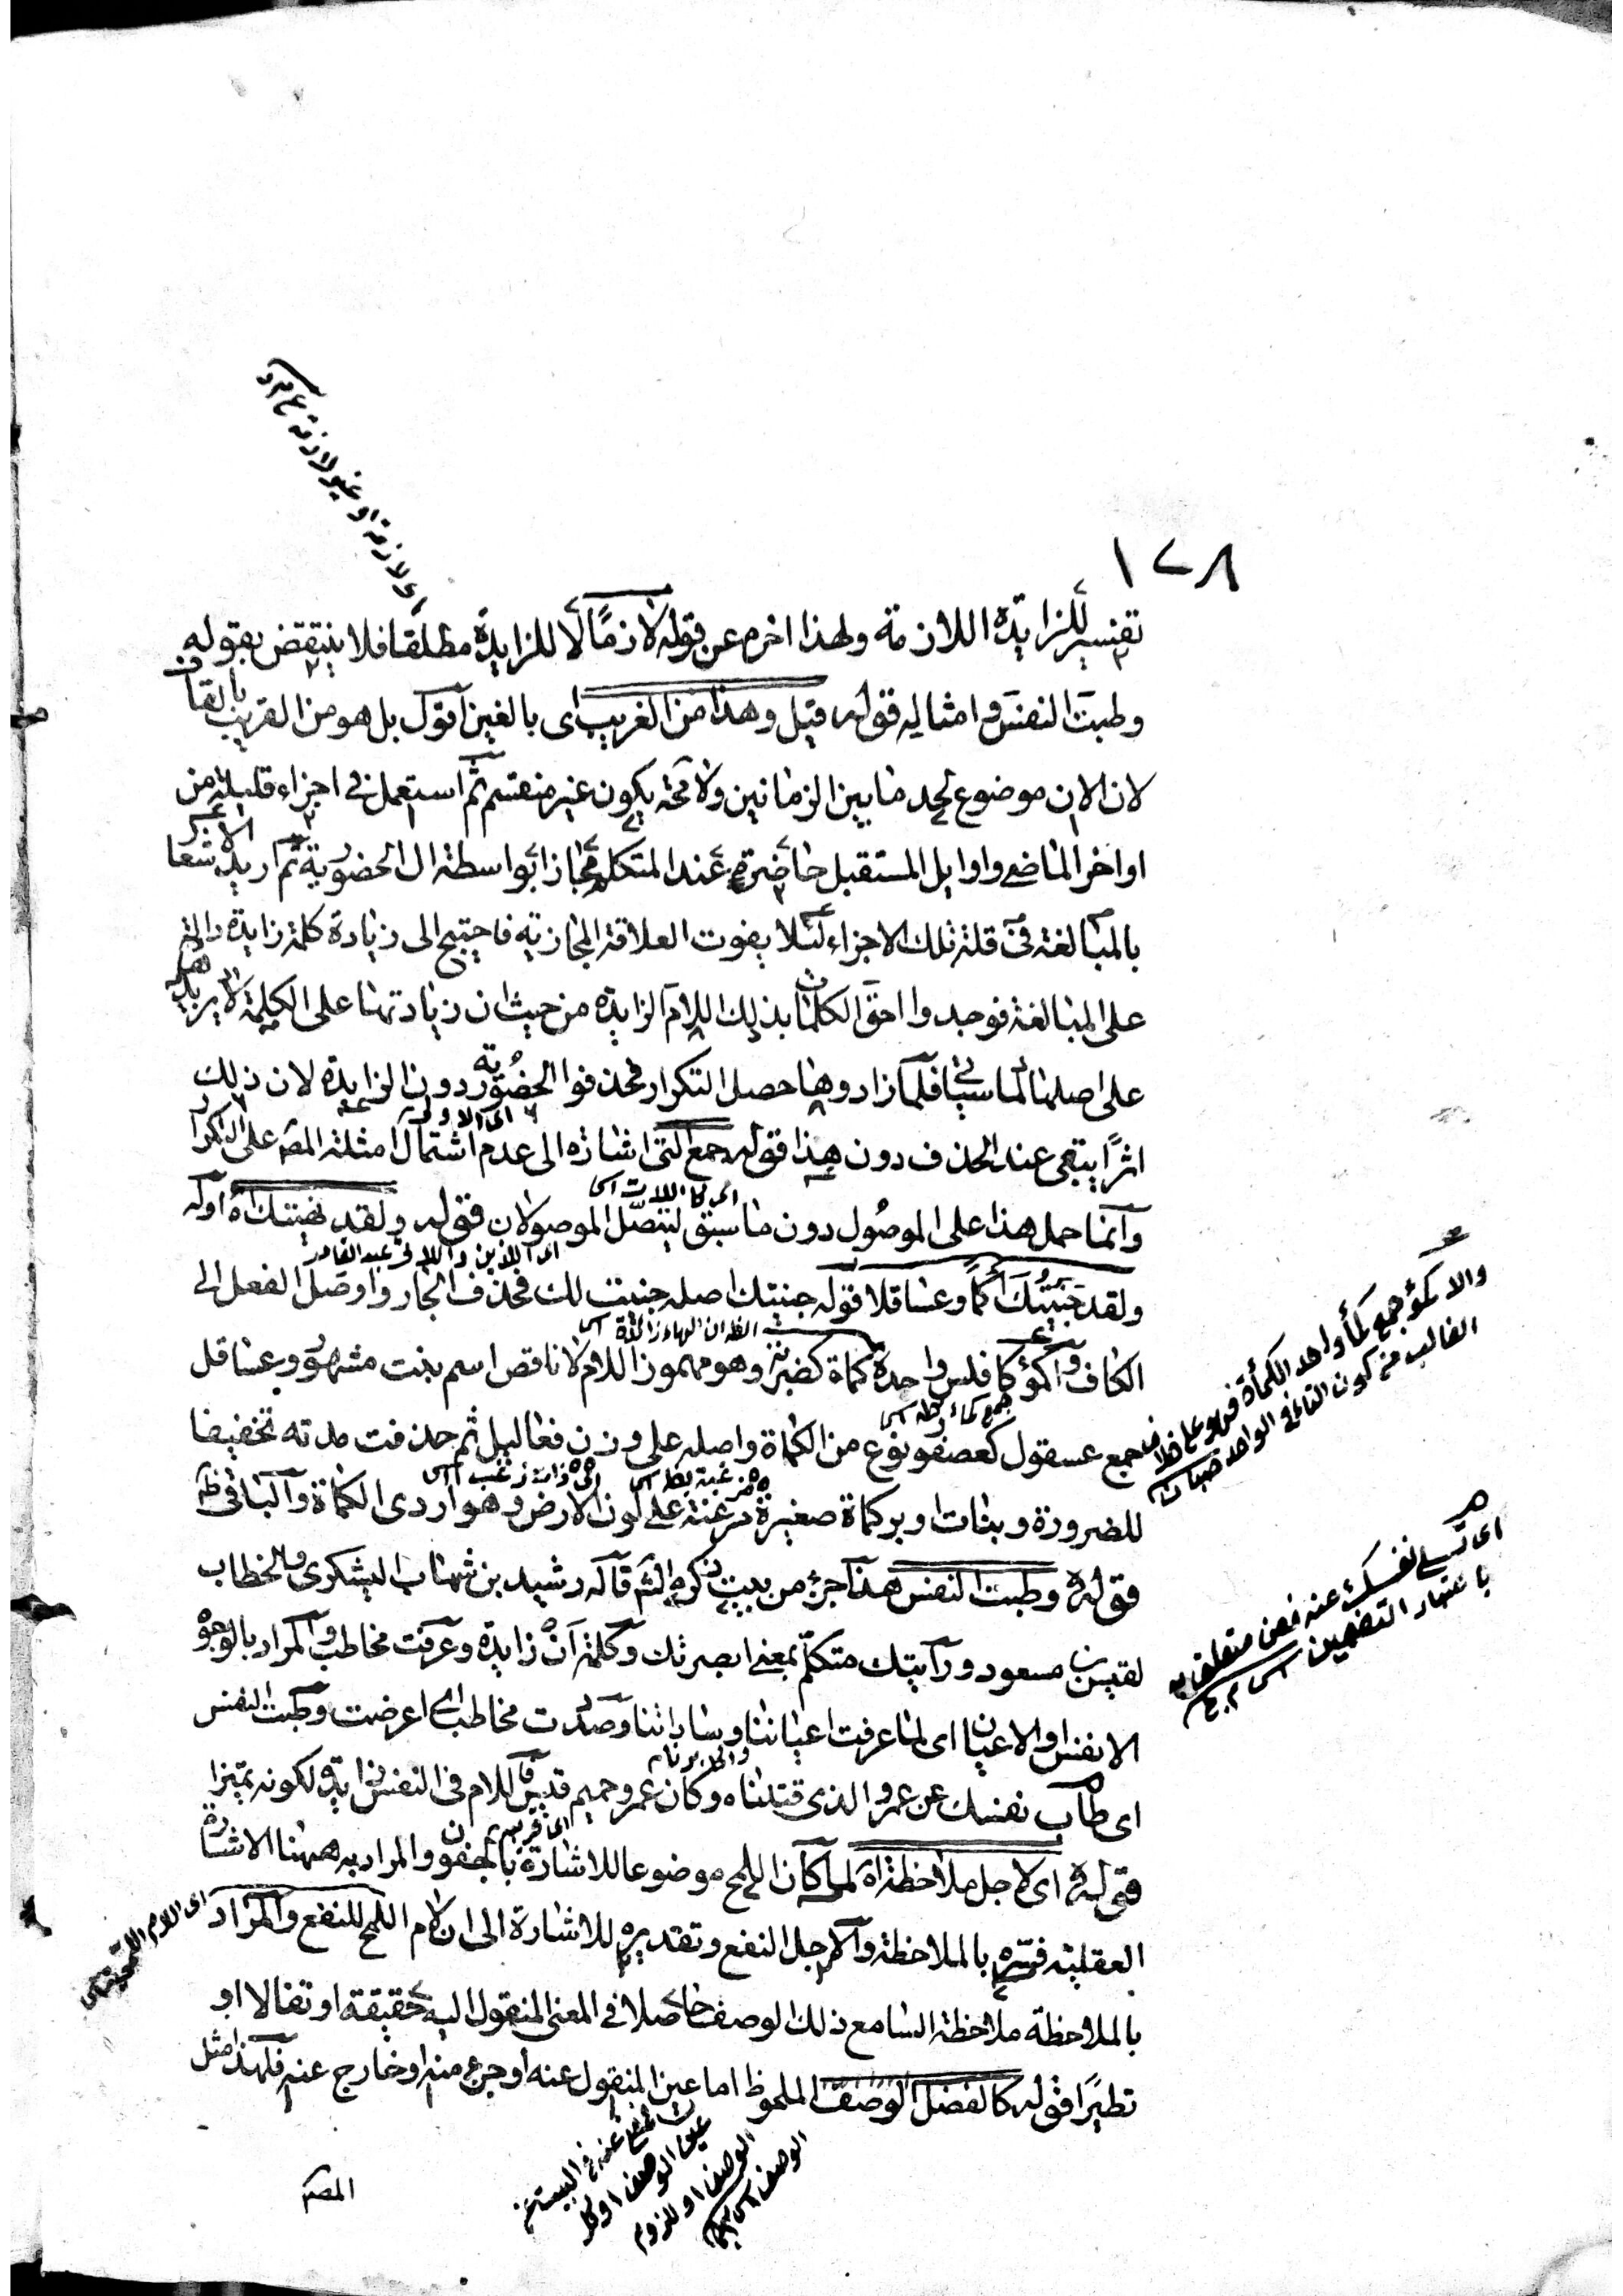 ١٢٨
تفسير للزايدة اللازمة ولهذا اخرم عن قوله لازمًا لا للزايدة مطلقا فلا ينتقض بقوله
وطبت النفس وامثاله قوله قيل وهذا من الغريب اى بالغين اقول بل هو من القريب بالقاف
لان الان موضوع لحد ما بين الزمانين ولا محة يكون غير منقسم ثم استعمل فى اجزاء قليلة من
اواخر الماضى واوايل المستقبل حاضرة عند المتكلم مجازا بواسطة ال الحضورية ثم اريد الاشعا
بالمبالغة فى قلة تلك الاجزاء لئلا يفوت العلاقة المجازية فاحتيج الى زيادة كلمة زايدة دالة
على المبالغة فوجدوا احق الكلمات بذلك اللام الزايدة من حيث ان زيادتها على الكلمة لا يريد
على اصلها لما سياتى فلما زادوها حصل التكرار فحذفوا الحضورية دون الزايدة لان ذلك
اثرًا يبقى عند الحذف دون هذا قوله جمع التى اشارة الى عدم اشتمال امثلة المصـ على التكرا
وانما حمل هذا على الموصول دون ما سبق ليتصل الموصولان قوله ولقد نهيتك اه اوله
ولقد جنيتك اكمأً وعساقلا قوله جنيتك اصله جنيت لك فحذف الجار واوصل الفعل الى
الكاف واكمؤ كافلس واحدة كماة كضربة وهو مهموز اللام لا ناقص اسم بنت مشهور وعساقل
جمع عسقول كعصفور نوع من الكماة واصله على وزن فعاليل ثم حذفت مدته تخفيفا
للضرورة وبنات اوبر كماة صغيرة مزغبة على لون الارض وهو اردى الكماة والباقى ظـ
قوله وطبت النفس هذا جزء من بيت ذكره الشـ قاله رشيد بن شهاب اليشكرى والخطاب
لقيس بن مسعود ورأيتك متكلم بمعنى ابصرتك وكلمة ان زايدة وعرفت مخاطب والمراد بالوجو
الانفس او الاعيان اى لما عرفت اعياننا وساداتنا وصددت مخاطب اى اعرضت وطبت النفس
اى طاب نفسك عن عمرو الذى قتلناه وكان عمرو حميم قيس فاللام فى النفس زايدة لكونه تميزا
قوله اى لاجل ملاحظة اه لما كان اللمح موضوعا للاشارة بالجفون والمراد به ههنا الاشارة
العقلية فسره بالملاحظة والاجل النفع وتقديره للاشارة الى ان لام اللمح للنفع والمراد
بالملاحظة ملاحظة السامع ذلك الوصف حاصلا فى المعنى المنقول اليه حقيقة او تفالا او
تطيرًا قوله كالفضل الوصف الملموظ اما عين المنقول عنه او جزء منه او خارج عنه فلهذا مثل
المصـ
اى لازمة او غير لازمة
اى الاولى
اى اللاتى
اى الذين واللاى عبد القادر
الظـ ان الهاء زائدة
اى ذات زغب
اى قريبه
والاكمؤ جمع كمأ واحد الكمأة فهو على خلاف
الغالب من كون التاء فى الواحد صبان
اى تسلى نفسك عنه فعن متعلق به
باعتبار التضمين
اى اللام
الوصف او ملزوم
الوصف